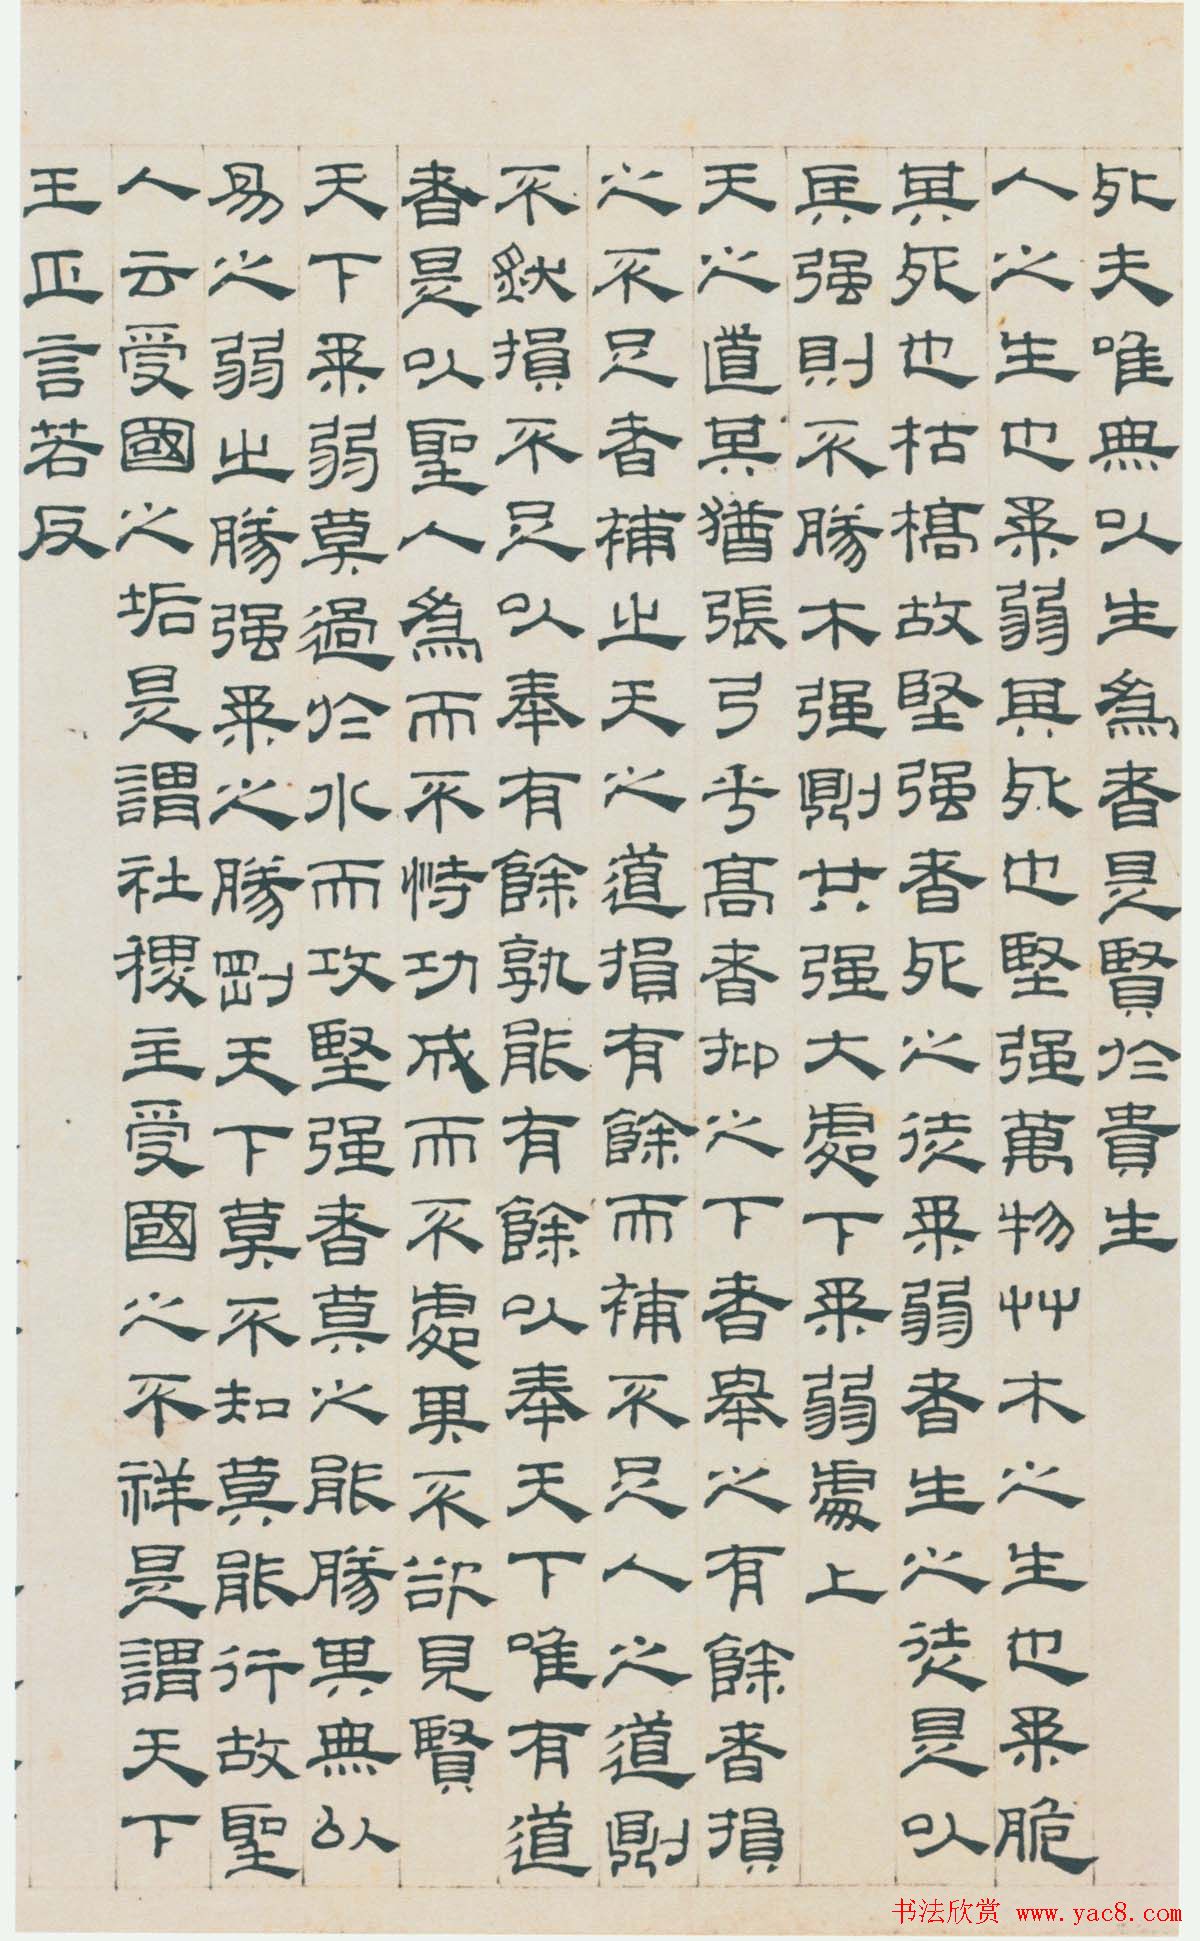 死夫唯無以生為者是賢於貴生
人之生也柔弱其死也堅强萬物艸木之生也柔脆
其死也枯槁故堅强者死之徒柔弱者生之徒是以
兵强則不勝木强則共强大處下柔弱處上
天之道其猶張弓乎高者抑之下者舉之有餘者損
之不足者補之天之道損有餘而補不足人之道則
不然損不足以奉有餘孰能有餘以奉天下唯有道
者是以聖人為而不恃功成而不處其不欲見賢
天下柔弱莫過於水而攻堅强者莫之能勝其無以
易之弱之勝强柔之勝剛天下莫不知莫能行故聖
人云受國之垢是謂社稷主受國之不祥是謂天下
王正言若反
书法欣赏 www.yac8.com